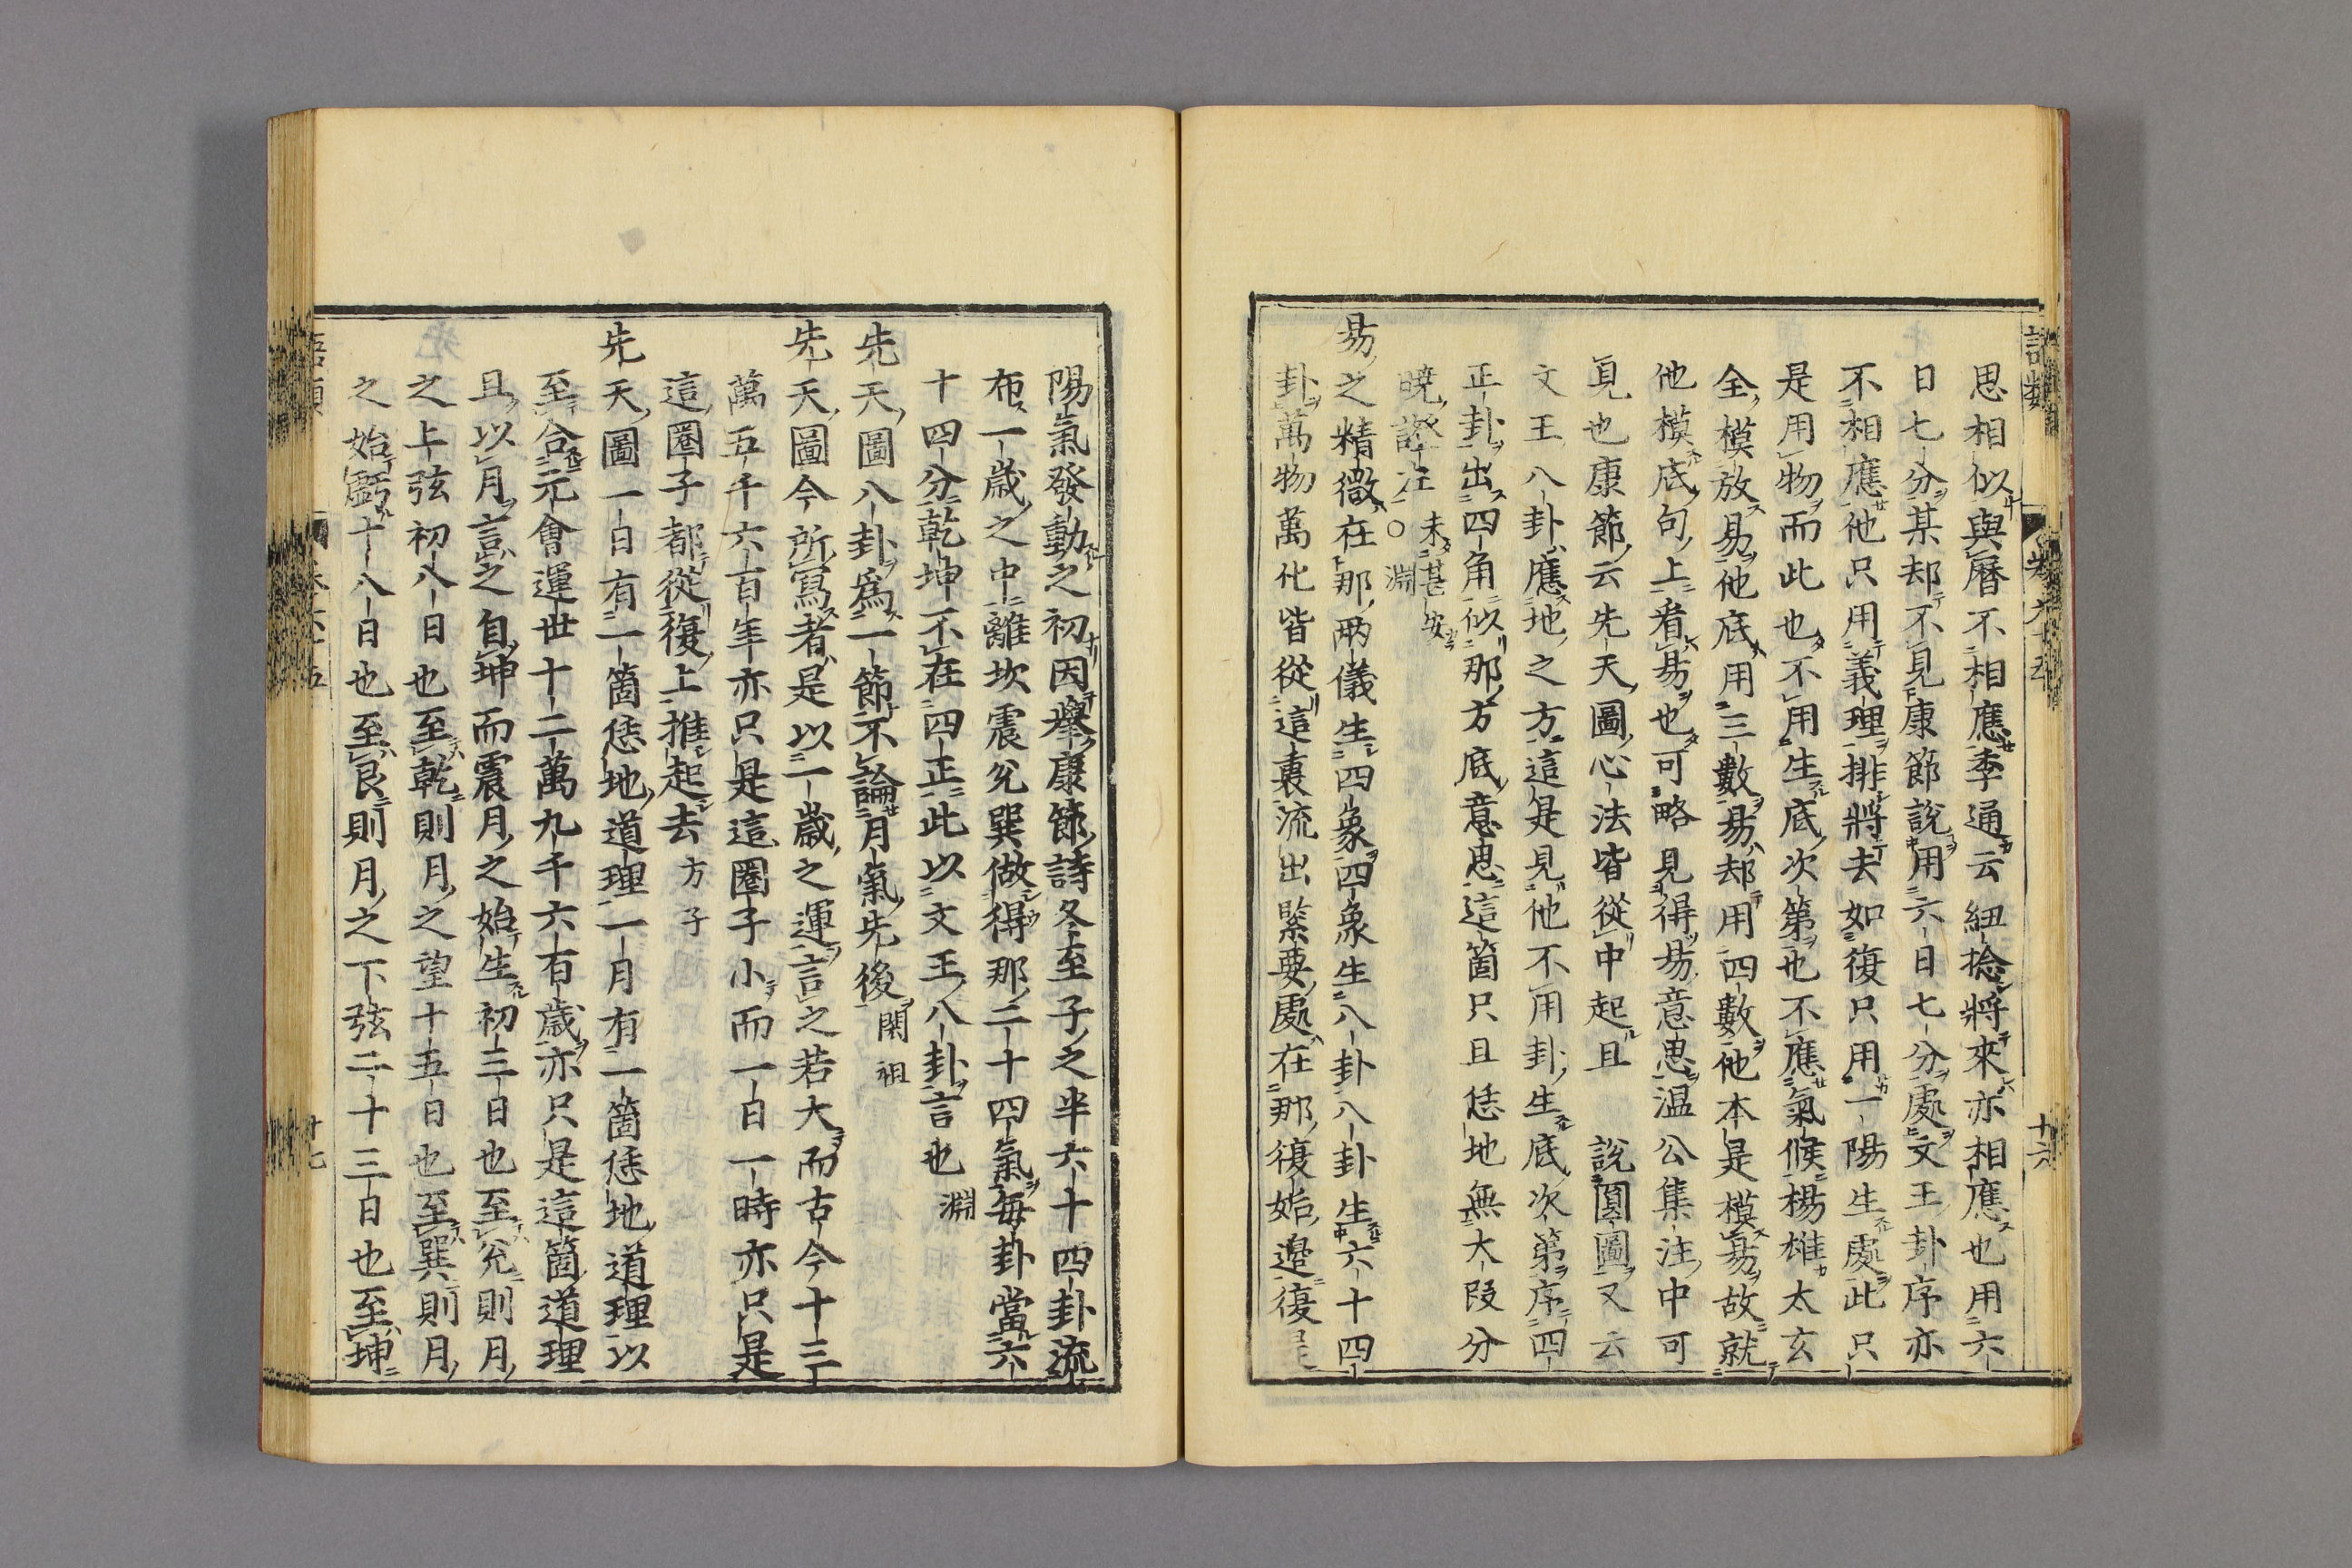 思相似與曆不相應季通云紐捻將來亦相應也用六
日七分某却不見康節說用六日七分處文王卦序亦
不相應他只用義理排將去如復只用一陽生處此只
是用物而此也不用生底次第也不應氣候楊雄太玄
全模放易他底用三數易却用四數他本是模易故就
他模底句上看易也可略見得易意思温公集注中可
見也康節云先天圖心法皆從中起且 說圓圖又云
文王八卦應地之方這是見他不用卦生底次第序四
正卦出四角似那方底意思這箇只且恁地無大段分
曉證注 未甚安
○淵
易之精微在那兩儀生四象四象生八卦八卦生六十四
卦萬物萬化皆從這裏流出緊要處在那復始邉復是
陽氣發動之初因舉康節詩冬至子之半六十四卦流
布一歲之中離坎震兌巽做得那二十四氣每卦當六
十四分乾坤不在四正此以文王八卦言也 淵
先天圖八卦爲一節不論月氣先後 閎祖
先天圖今所寫者是以一歲之運言之若大而古今十三
萬五千六百年亦只是這圈子小而一日一時亦只是
這圈子都從復上推起去 方子
先天圖一日有一箇恁地道理一月有一箇恁地道理以
至合元會運世十二萬九千六百歲亦只是這箇道理
且以月言之自坤而震月之始生初三日也至兌則月
之上弦初八日也至乾則月之望十五日也至巽則月
之始虧十八日也至艮則月之下弦二十三日也至坤
十七